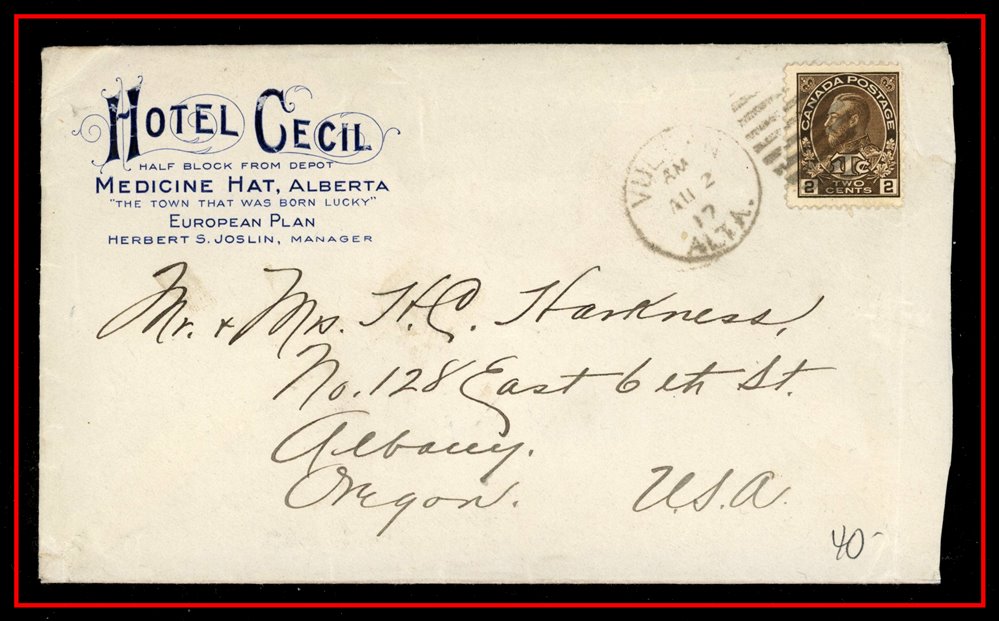 HOTEL CECIL
HALF BLOCK FROM DEPOT
MEDICINE HAT, ALBERTA
"THE TOWN THAT WAS BORN LUCKY"
EUROPEAN PLAN
HERBERT S. JOSLIN, MANAGER
AM
AU 2
17
ALTA.
CANADA POSTAGE
1Tc
2 TWO CENTS 2
Mr. & Mrs. H.C. Harkness,
No. 128 East 6th St.
Albany.
Oregon. U.S.A.
40-